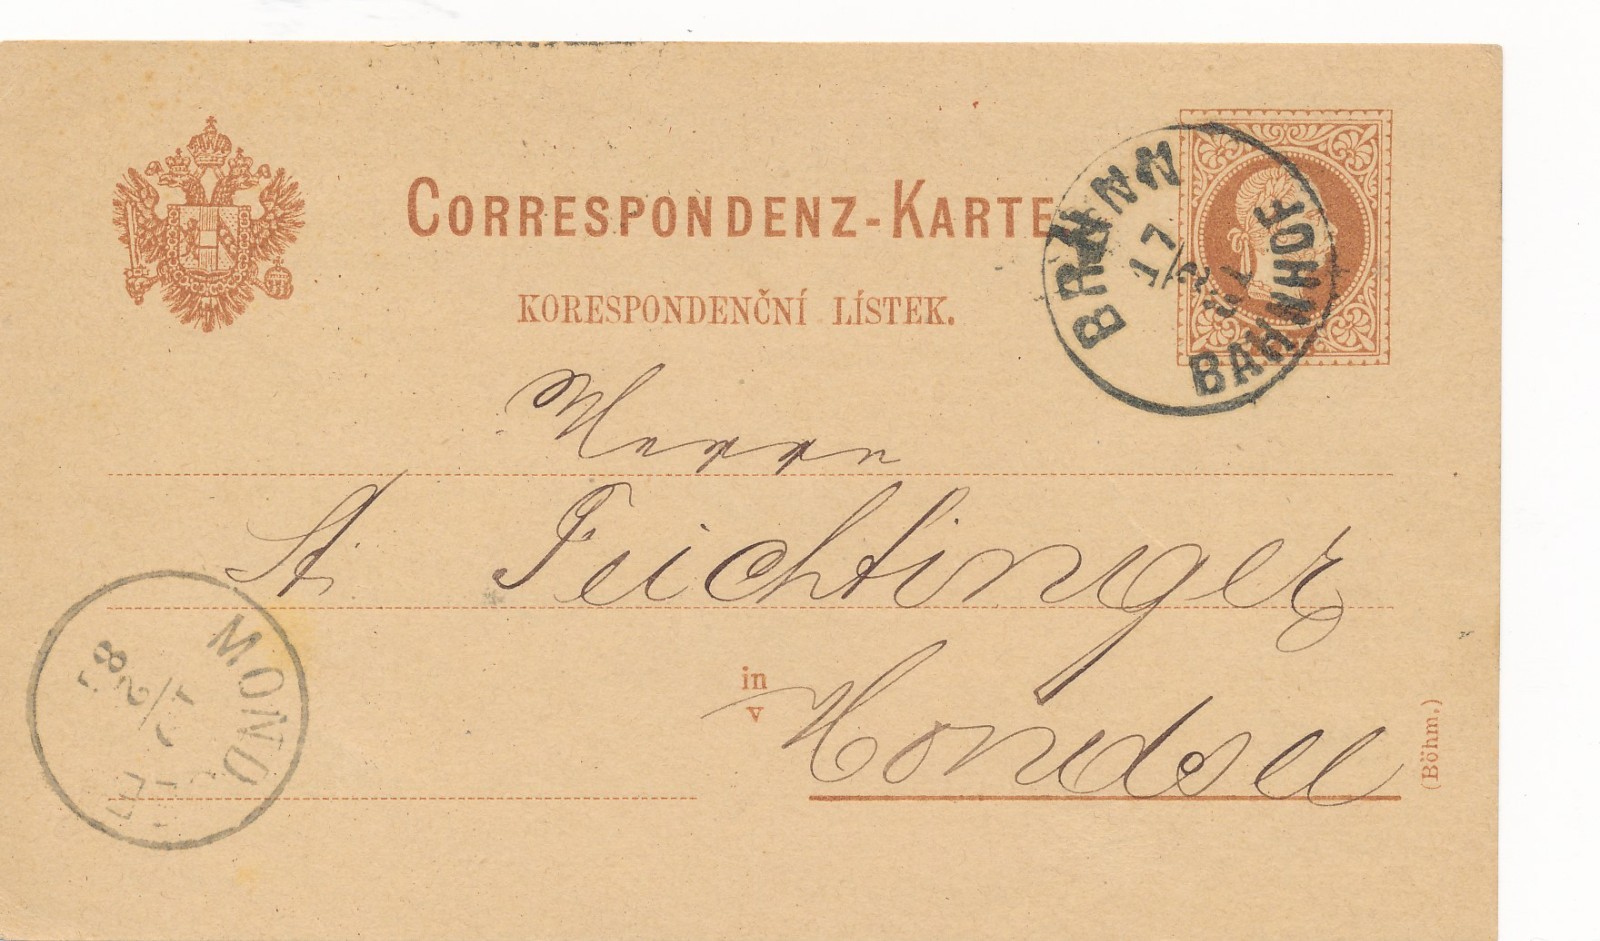 CORRESPONDENZ-KARTE
KORESPONDENČNÍ LÍSTEK.
BRÜNN BAHNHOF
17/2
Herrn
A. Feichtinger
in
v
Mondsee
(Böhm.)
MONDSEE